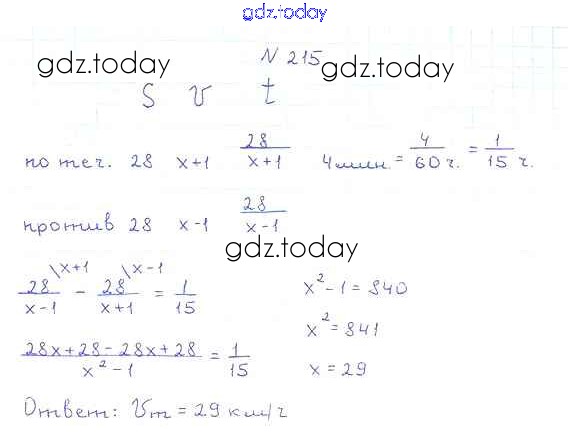 gdz.today
N 215
gdz.today gdz.today
S v t
по теч. 28 x+1 28/(x+1) 4 мин. = 4/60 ч. = 1/15 ч.
против 28 x-1 28/(x-1)
gdz.today
28/(x-1) \x+1 - 28/(x+1) \x-1 = 1/15
x² - 1 = 840
x² = 841
(28x+28-28x+28)/(x²-1) = 1/15
x = 29
Ответ: Vт = 29 км/ч